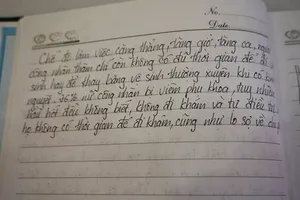 No.
Date.
Chế độ làm việc căng thẳng, tăng giờ, tăng ca, người
công nhân thậm chí còn không có đủ thời gian để đi vệ
sinh hay để thay băng vệ sinh thường xuyên khi có kinh
nguyệt. 36% nữ công nhân bị viêm phụ khoa, tuy nhiên
hầu hết đều không biết, không đi khám và tự điều trị
họ không có thời gian để đi khám, cũng như lo sợ về